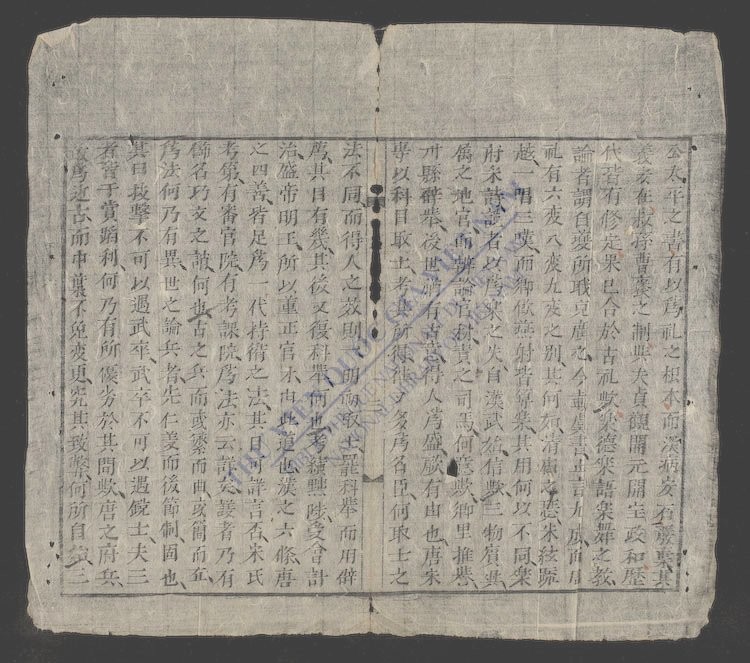 公太平之書有以爲礼之根本而漢病安石廢棄其
義安在歟拵曹褒之制與夫貞觀開元開宝政和歷
代皆有修定果巳合於古礼歟樂德樂語樂舞之教
論者謂自夔所職克廣之今
礼有六变八变九变之別其何如清廟之瑟朱絃疏
越一唱三嘆而鄉飲燕射皆尋樂其用何以不同樂
府宋詩說者以爲樂之失自漢武始信歟三物賓興
属之地官而辨論官材責之司馬何意歟鄉里推舉
州縣辟舉後世雖有古意得人爲盛厥有由也唐宋
專以科目取士考其所得得人多爲名臣何取士之
法不同而得人之效則一明而取士罷科舉而用僻
薦其目有幾其後又復科舉何也考績黜陟受會計
治盛帝明王所以董正官木由此道也漢之六條唐
之四善皆足爲一代持術之法其目可詳言否宋氏
考第有審官院有考課院爲法亦云詳矣議者乃有
飾名巧文之誚何也古之兵而或繁而典或簡而
爲法何乃有異世之論兵者先仁義而後節制固也
其曰技擊不可以遇武卒武卒不可以遇銳士夫三
者皆于賞蹈利何乃有所優劣於其間歟唐之府兵
最爲近古而中葉不免变更究其致弊何所自
THE VIETNAMESE NÔM PRESERVATION FOUNDATION